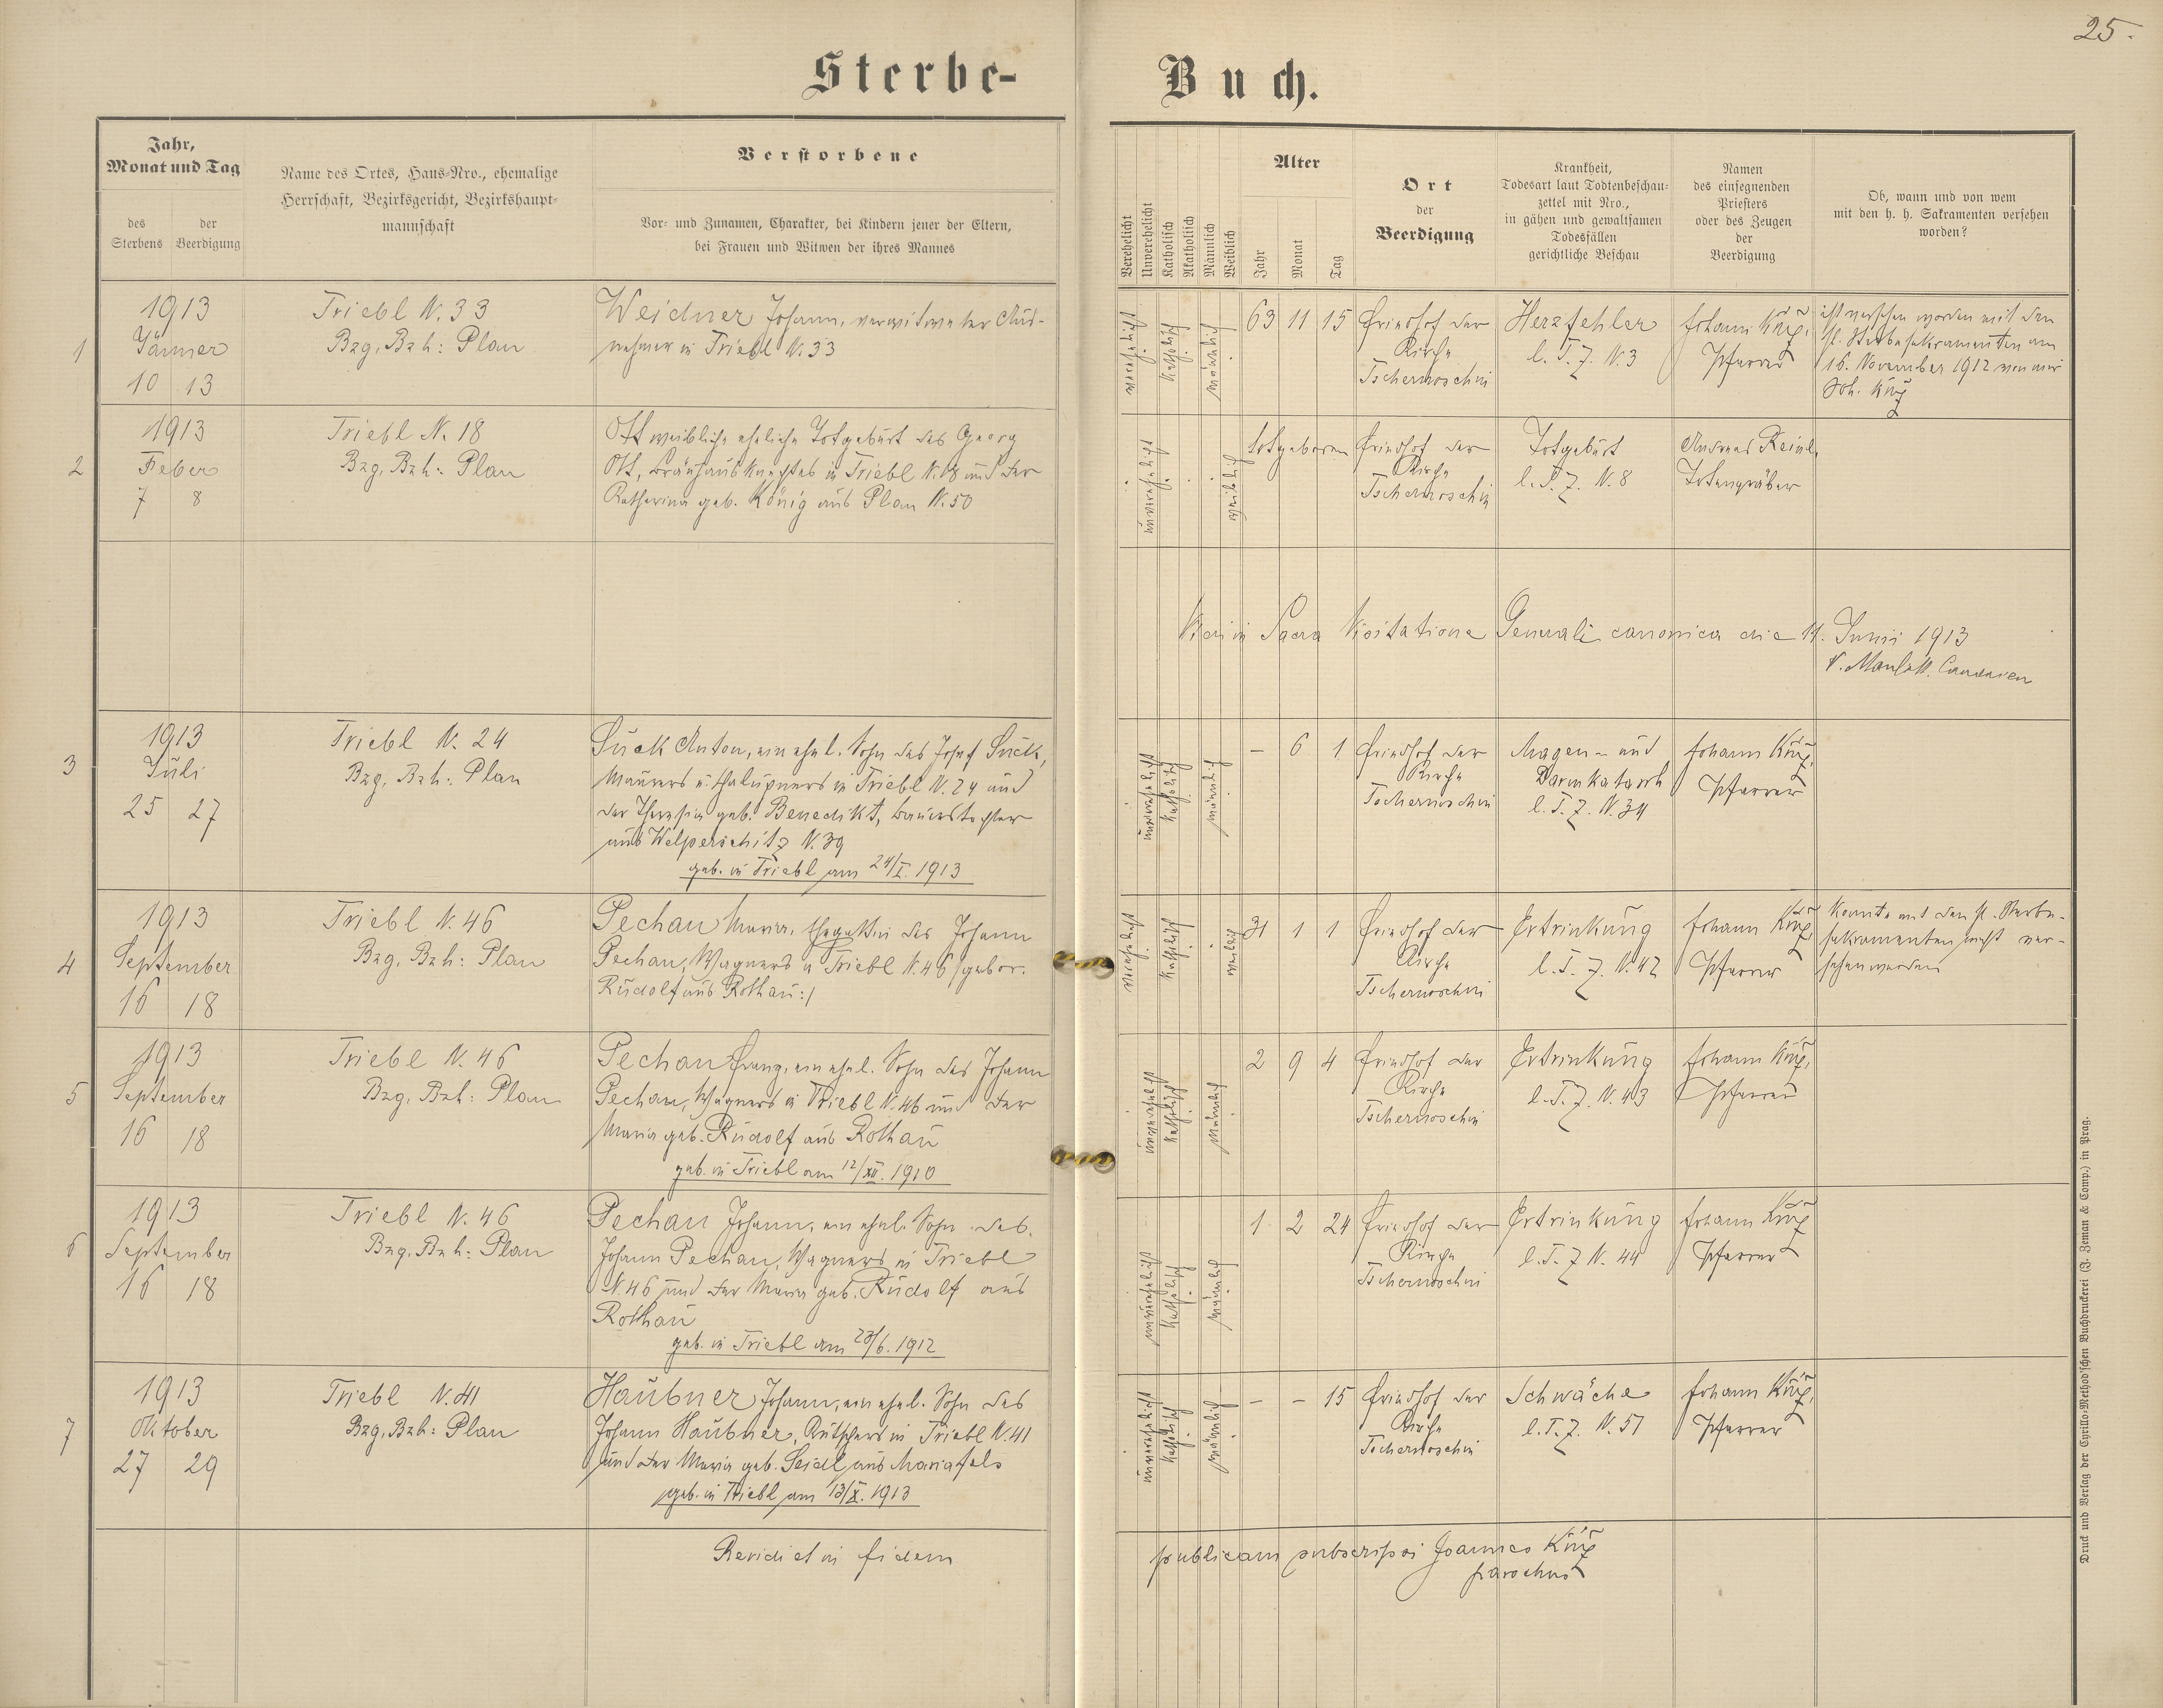 25.
Sterbe-Buch.
Jahr,
Monat und Tag
des Sterbens
der Beerdigung
Name des Ortes, Haus-Nro., ehemalige
Herrschaft, Bezirksgericht, Bezirkshaupt-
mannschaft
Verstorbene
Vor- und Zunamen, Charakter, bei Kindern jener der Eltern,
bei Frauen und Witwen der ihres Mannes
Verehelicht
Unverehelicht
Katholisch
Akatholisch
Männlich
Weiblich
Alter
Jahr
Monat
Tag
Ort
der
Beerdigung
Krankheit,
Todesart laut Todtenbeschau-
zettel mit Nro.,
in gähen und gewaltsamen
Todesfällen
gerichtliche Beschau
Namen
des einsegnenden
Priesters
oder des Zeugen
der
Beerdigung
Ob, wann und von wem
mit den h. h. Sakramenten versehen
worden?
1
1913
Jänner
10 13
Triebl N. 33
Bzg, Bzh: Plan
Weidner Johann, verwitweter Aus-
nehmer in Triebl N. 33
verehelicht
katholisch
männlich
63 11 15
Friedhof der
Kirche
Tschernoschin
Herzfehler
l. T. Z. N. 3
Johann
Pfarrer
ist versehen worden mit den
hl. Sterbesakramenten am
16. November 1912 von mir
Joh.
2
1913
Feber
7 8
Triebl N. 18
Bzg, Bzh: Plan
Ott weibliche eheliche Totgeburt des Georg
Ott, Bräuhausknechtes in Triebl N. 18 und der
Katharina geb. König aus Plan N. 50
unverehelicht
weiblich
totgeboren
Friedhof der
Kirche
Tschernoschin
Totgeburt
l. T. Z. N. 8
Andreas Reinl,
Totengräber
Sacra Visitatione Generali canonica die 11. Junii 1913
3
1913
Juli
25 27
Triebl N. 24
Bzg, Bzh: Plan
Suck Anton, ein ehel. Sohn des Josef Suck,
Maurers u. Chalupners in Triebl N. 24 und
der Theresia geb. Benedikt, Bauerstochter
aus Welperschitz N. 39
geb. in Triebl am 24/I. 1913
unverehelicht
katholisch
männlich
– 6 1
Friedhof der
Kirche
Tschernoschin
Magen- und
Darmkatarrh
l. T. Z. N. 34
Johann
Pfarrer
4
1913
September
16 18
Triebl N. 46
Bzg, Bzh: Plan
Pechan Maria, Ehegattin des Johann
Pechan, Wagners in Triebl N. 46 /gebor.
Rudolf aus Rothau:/
verehelicht
katholisch
weiblich
31 1 1
Friedhof der
Kirche
Tschernoschin
Ertrinkung
l. T. Z. N. 42
Johann
Pfarrer
Konnte mit den hl. Sterbe-
sakramenten nicht ver-
sehen werden
5
1913
September
16 18
Triebl N. 46
Bzg, Bzh: Plan
Pechan Franz, ein ehel. Sohn des Johann
Pechan, Wagners in Triebl N. 46 und der
Maria geb. Rudolf aus Rothau
geb. in Triebl am 12/XII. 1910
unverehelicht
katholisch
männlich
2 9 4
Friedhof der
Kirche
Tschernoschin
Ertrinkung
l. T. Z. N. 43
Johann
Pfarrer
6
1913
September
16 18
Triebl N. 46
Bzg, Bzh: Plan
Pechan Johann, ein ehel. Sohn des
Johann Pechan, Wagners in Triebl
N. 46 und der Maria geb. Rudolf aus
Rothau
geb. in Triebl am 23/6. 1912
unverehelicht
katholisch
männlich
1 2 24
Friedhof der
Kirche
Tschernoschin
Ertrinkung
l. T. Z N. 44
Johann
Pfarrer
7
1913
Oktober
27 29
Triebl N. 41
Bzg, Bzh: Plan
Haubner Johann, ein ehel. Sohn des
Johann Haubner, Kutschers in Triebl N. 41
und der Maria geb. Seidl aus Mariafels
geb. in Triebl am 13/X. 1913
unverehelicht
katholisch
männlich
– – 15
Friedhof der
Kirche
Tschernoschin
Schwäche
l. T. Z. N. 51
Johann
Pfarrer
Revidi et in fidem publicam subscripsi Joannes
parochus
Druck und Verlag der Cyrillo-Method'schen Buchdruckerei (J. Zeman & Comp.) in Prag.